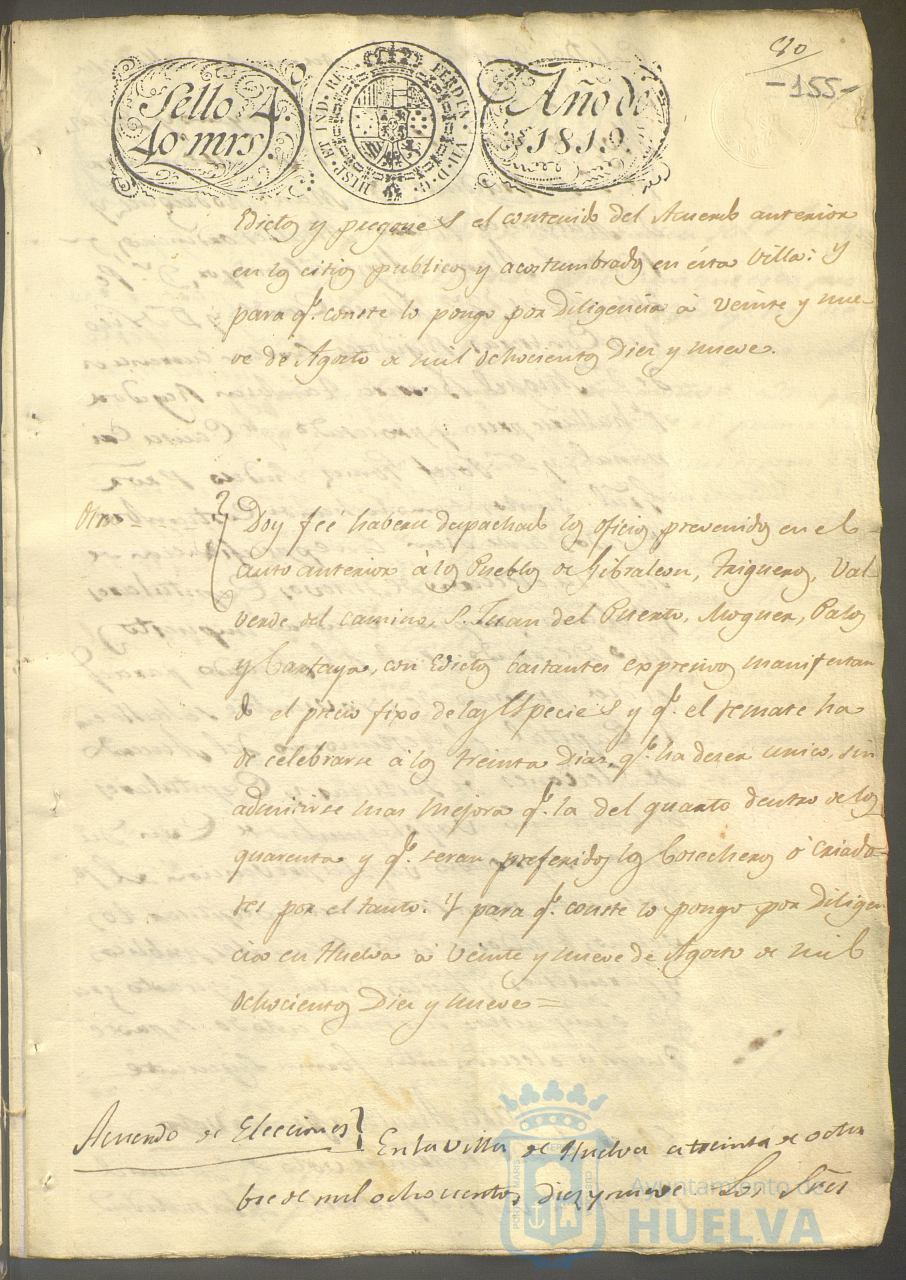 90
-155-
Sello 4.
40 mrs.
HISP. ET IND. REX. FERDIN. VII. D. G.
Año de
1819.
Edictos y pregones el contenido del Acuerdo anterior
en los citios publicos y acostumbrados en ésta Villa: Y
para qe. conste lo pongo por Diligencia à veinte y nue-
ve de Agosto de mil ochocientos Diez y nueve.
Otra
Doy feé haberse despachado los oficios prevenidos en el
auto anterior à los Pueblos de Gibraleon, Trigueros, Val-
verde del camino, S. Juan del Puerto, Moguer, Palos
y Cartaya, con Edictos bastantes expresivos manifestan
do el precio fixo de las Especies y qe. el remate ha
de celebrarse à los treinta Dias, qe. ha de ser unico, sin
admitirse mas mejora qe. la del quarto dentro de los
quarenta y qe. seran preferidos los Cosecheros ó criado-
res por el tanto: Y para qe. conste lo pongo por Diligen
cia en Huelva à Veinte y nueve de Agosto de mil
ochocientos Diez y nueve=
Acuerdo de Elecciones
En la villa de Huelva a treinta de octu
bre de mil ochocientos diez y nueve Los Sres
Ayuntamiento de
HUELVA